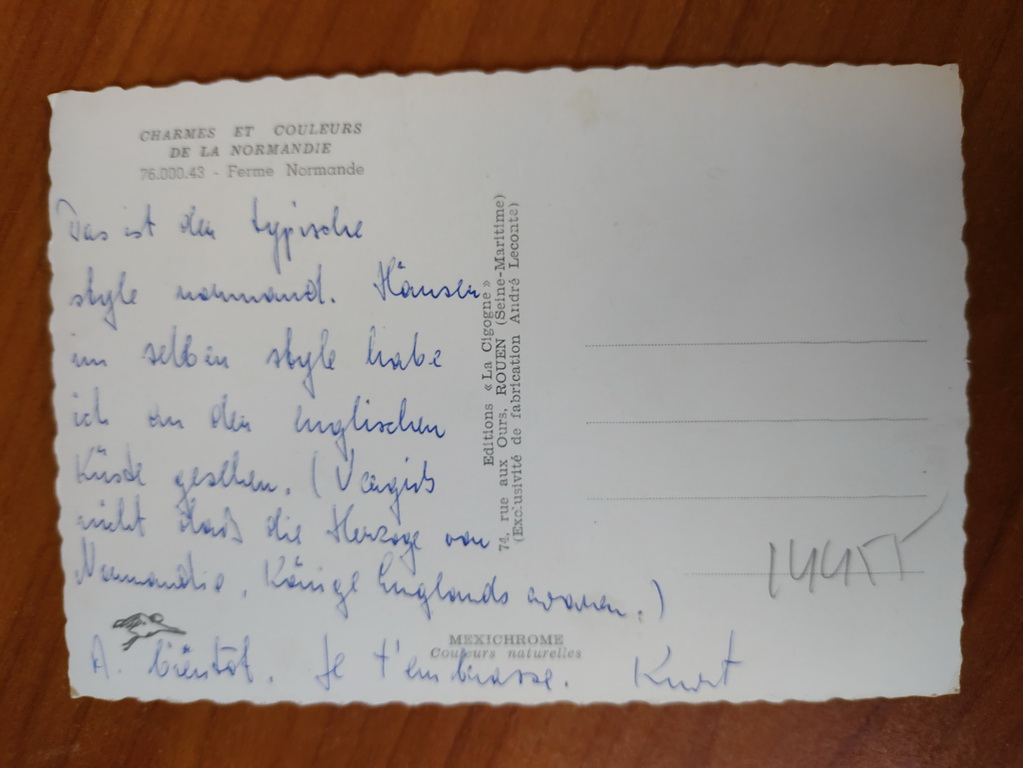 CHARMES ET COULEURS
DE LA NORMANDIE
76.000.43 - Ferme Normande
Das ist der typische
style normand. Häuser
im selben style habe
ich an der englischen
Küste gesehen. (Vergiß
nicht daß die Herzoge von
Normandie, Könige Englands waren.)
A. bientôt. Je t'embrasse. Kurt
Editions « La Cigogne »
74, rue aux Ours, ROUEN (Seine-Maritime)
(Exclusivité de fabrication André Leconte)
MEXICHROME
Couleurs naturelles